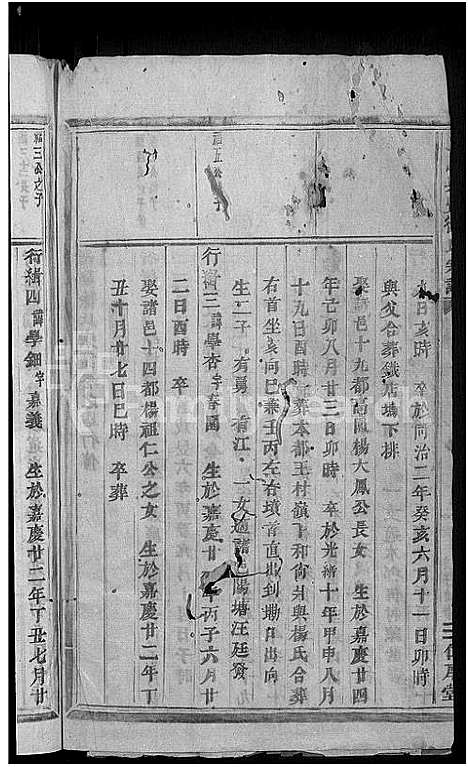 六日亥時　卒於同治二年癸亥六月十一日卯時
與父合葬鐵店塢下排
娶諸邑十九都高楊大鳳公長女　生於嘉慶廿四
年己卯八月廿三日卯時　卒於光緒十年甲申八月
十九日酉時　葬本都王村嶺下和尚井與楊氏合葬
右首坐亥向巳兼壬丙左右墳首直出到塝田出向
生二子　有勇　有江　一女適諸陽塘汪廷發
諱五公子
行緝三諱學杏字春園　生於嘉慶廿丙子六月廿
二日酉時　卒
娶諸邑十四都楊祖仁公之女　生於嘉慶廿二年丁
丑十月廿七日巳時　卒葬
三公之子
行緝四諱學鈿字嘉義　生於嘉慶廿二年丁丑七月廿